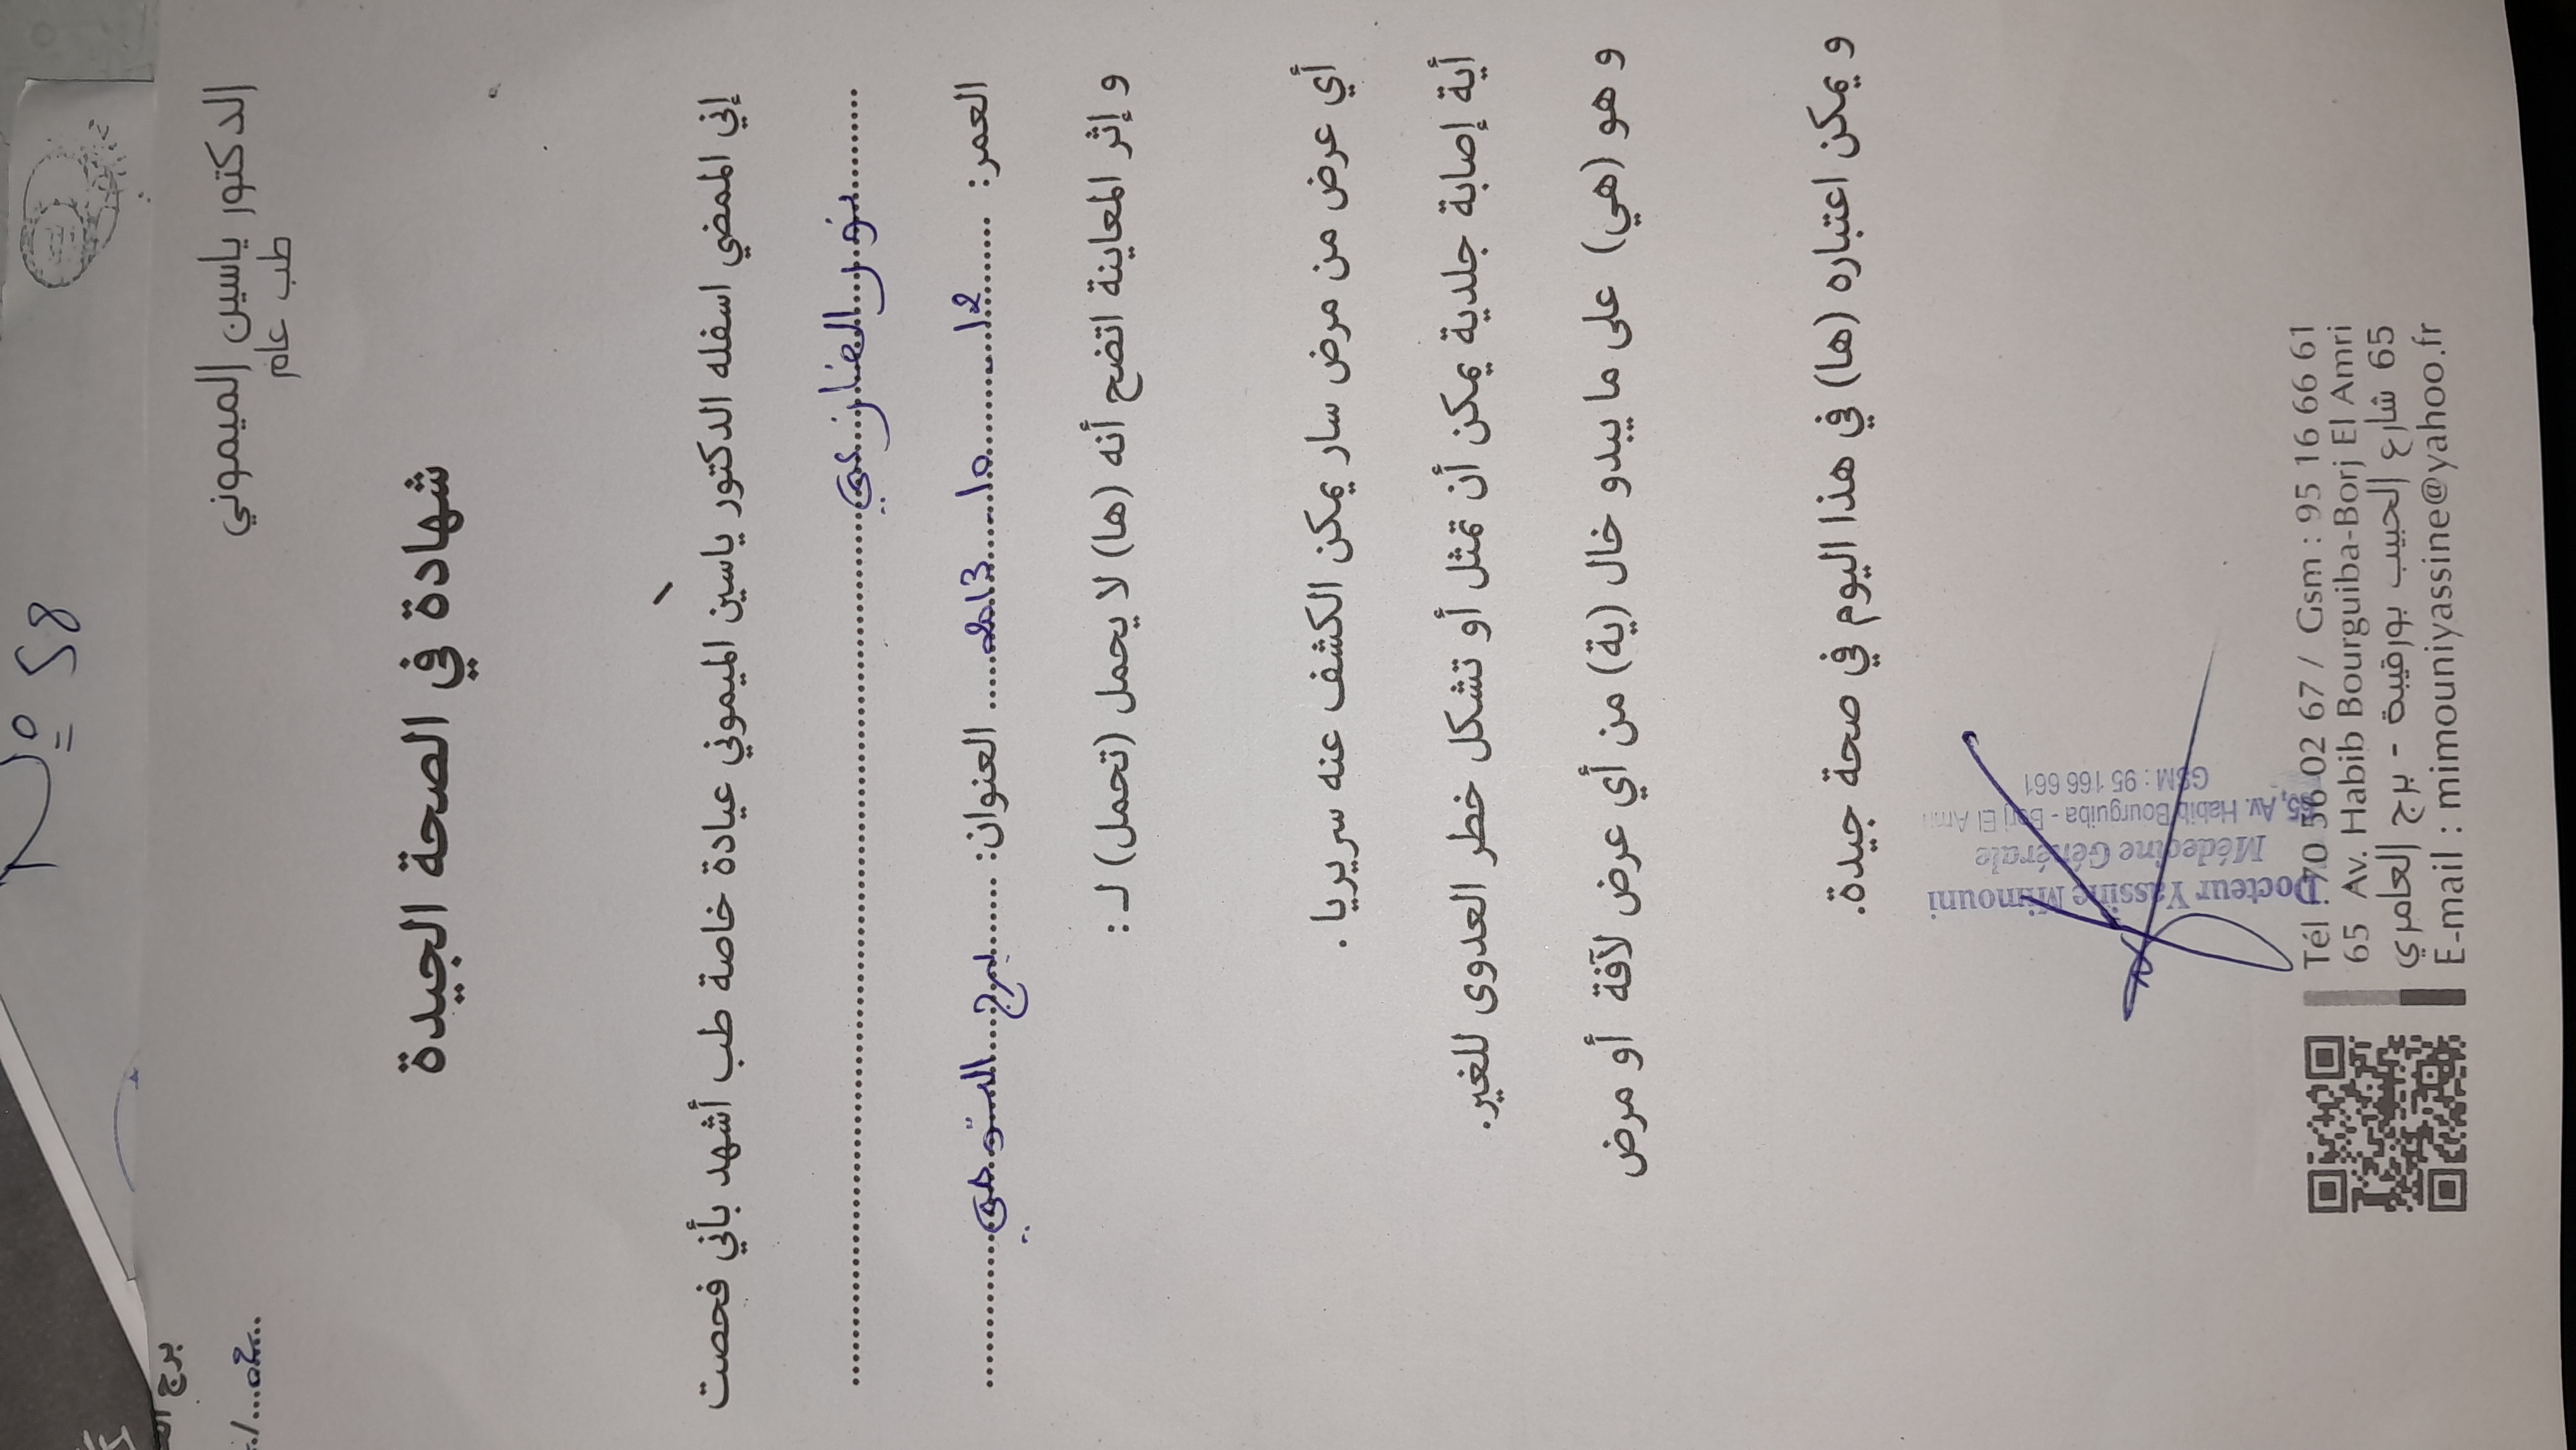 N° 58
الدكتور ياسين الميموني
طب عام
برج
شهادة في الصحة الجيدة
إني الممضي اسفله الدكتور ياسين الميموني عيادة خاصة طب أشهد بأني فحصت
نور
العمر: 12 10 2013 العنوان: برج
و إثر المعاينة اتضح أنه (ها) لا يحمل (تحمل) لـ :
أي عرض من مرض سار يمكن الكشف عنه سريريا .
أية إصابة جلدية يمكن أن تمثل أو تشكل خطر العدوى للغير.
و هو (هي) على ما يبدو خال (ية) من أي عرض لآفة أو مرض
و يمكن اعتباره (ها) في هذا اليوم في صحة جيدة.
Docteur Yassine Mimouni
Médecine Générale
65, Av. Habib Bourguiba - Borj El Amri
GSM : 95 166 661
Tél : 70 56 02 67 / Gsm : 95 16 66 61
65 Av. Habib Bourguiba-Borj El Amri
65 شارع الحبيب بورقيبة - برج العامري
E-mail : mimouniyassine@yahoo.fr